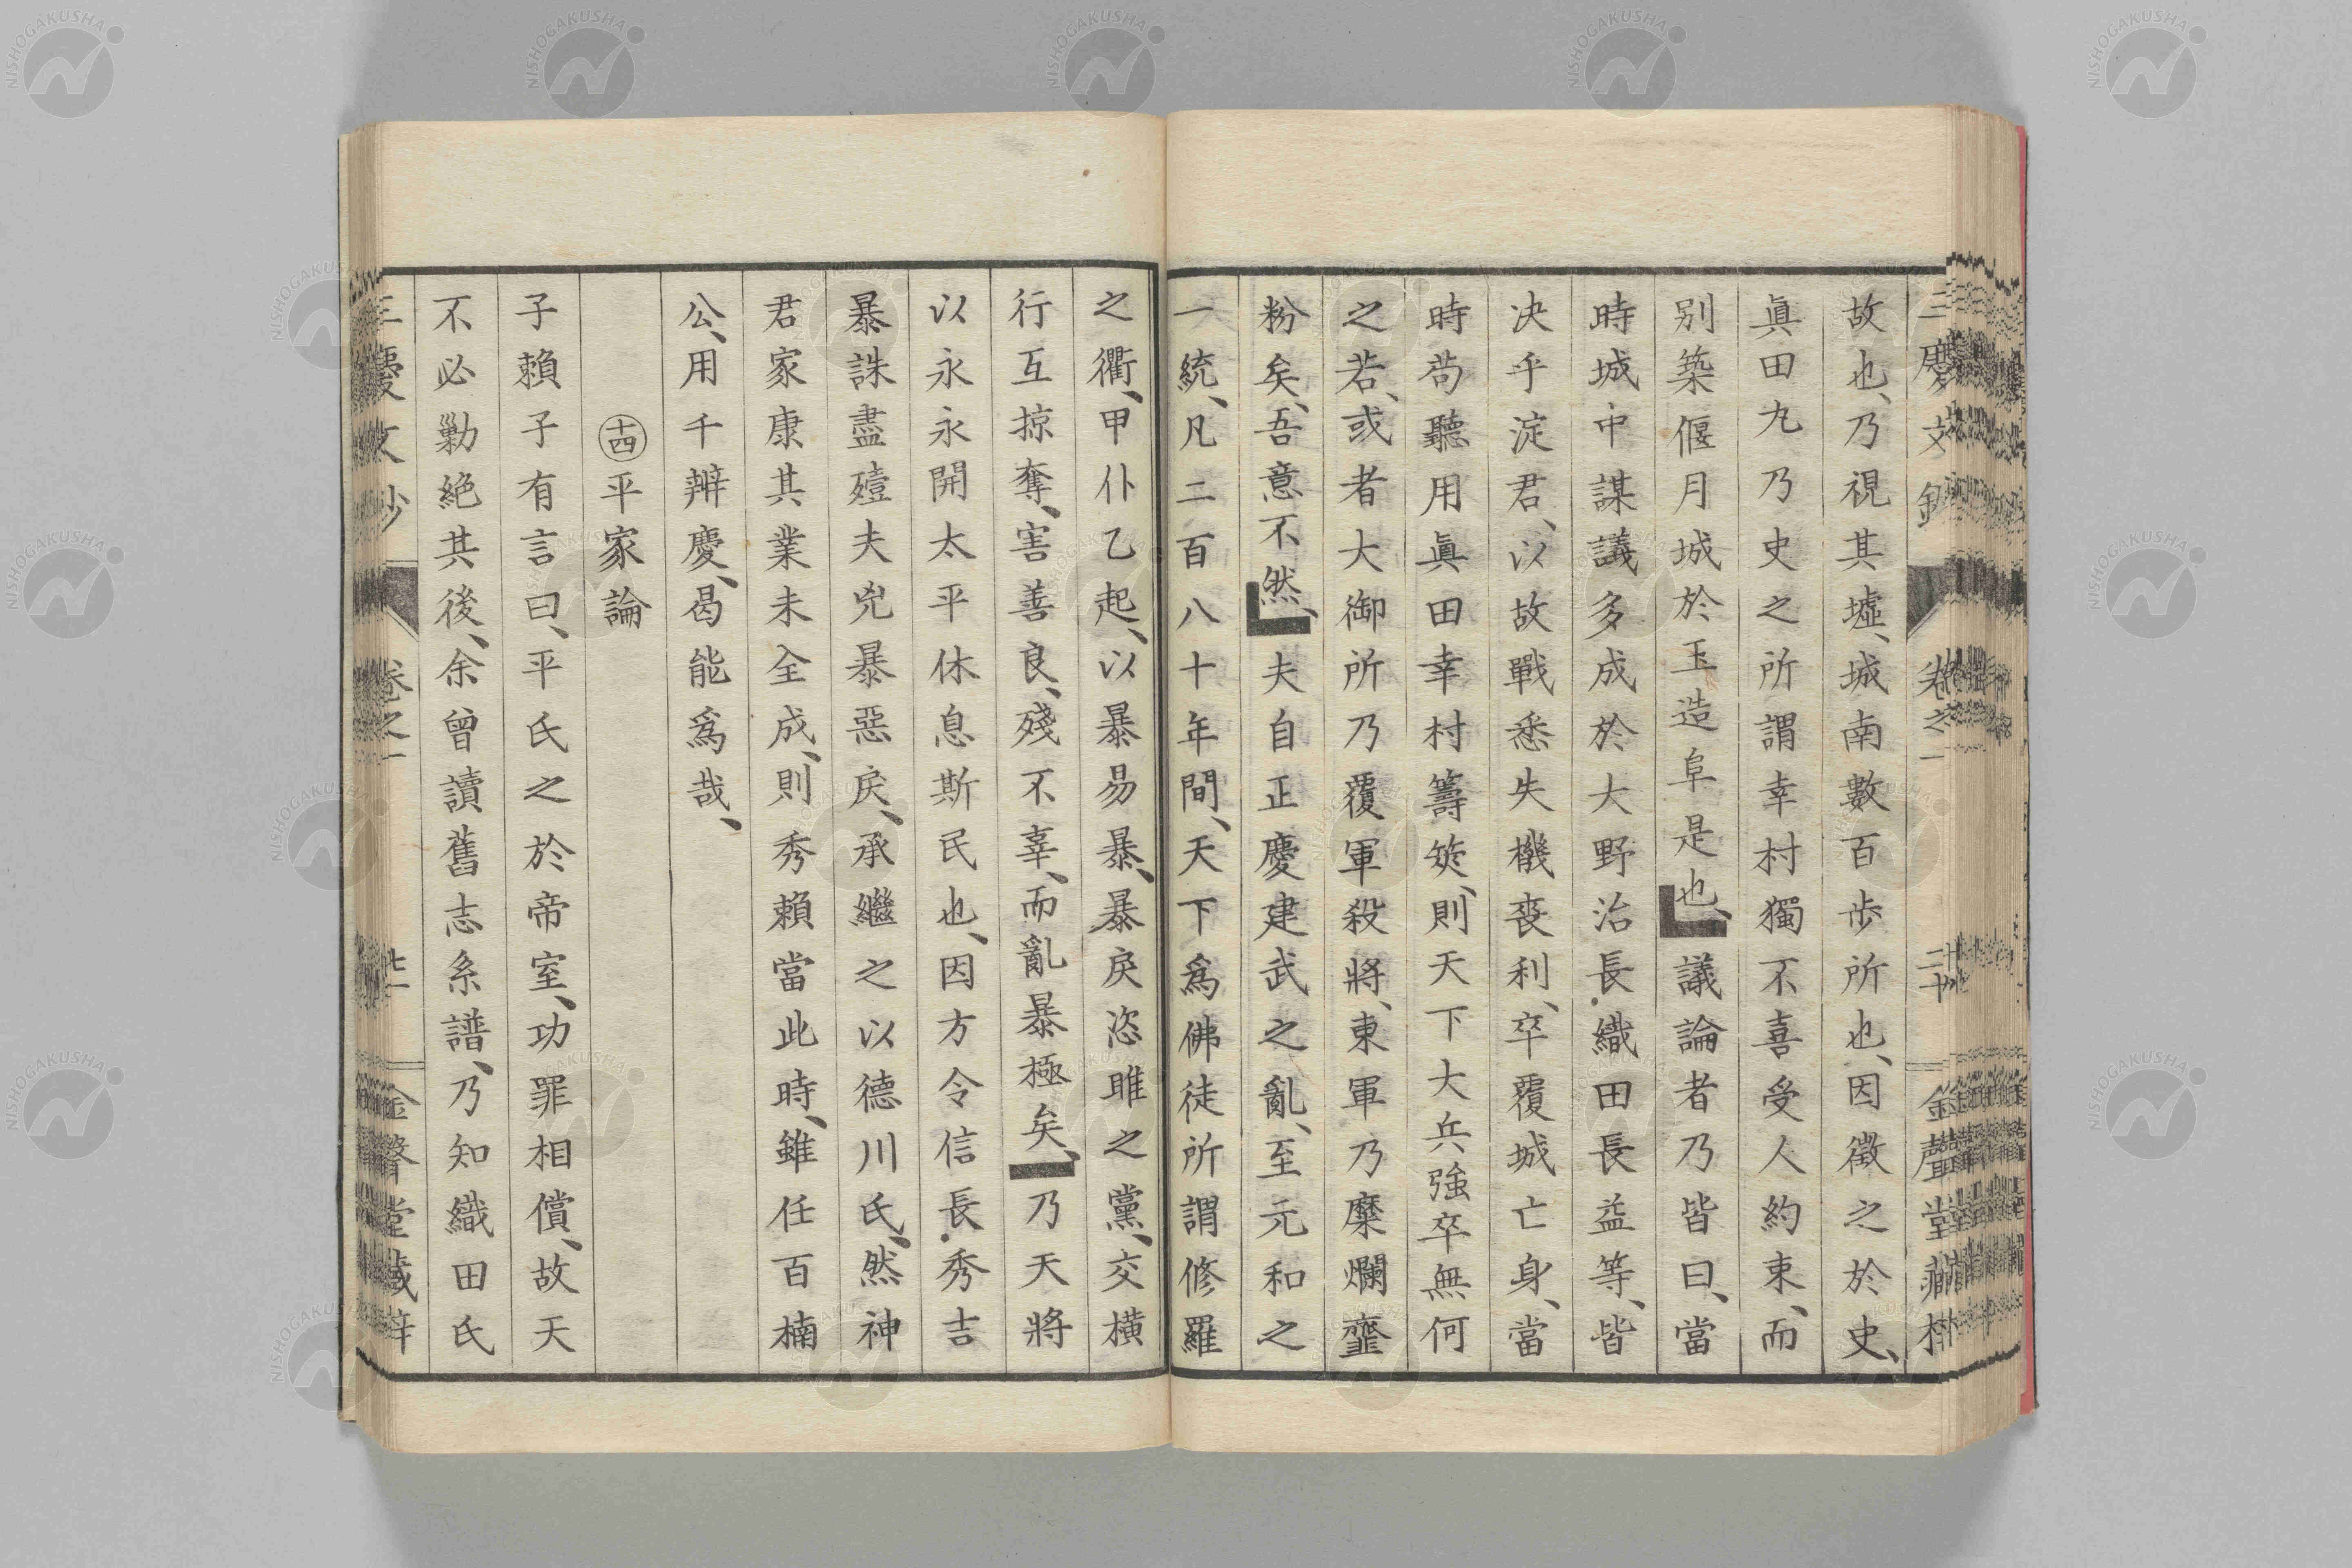 三慶文鈔 卷之一 二十 金聲堂藏梓
故也、乃視其墟、城南數百步所也、因徵之於史、
眞田丸乃史之所謂幸村獨不喜受人約束、而
別築偃月城於玉造阜是也、議論者乃皆曰、當
時城中謀議多成於大野治長・織田長益等、皆
决乎淀君、以故戰悉失機喪利、卒覆城亡身、當
時苟聽用眞田幸村籌筴、則天下大兵強卒無何
之若、或者大御所乃覆軍殺將、東軍乃糜爛虀
粉矣、吾意不然、夫自正慶建武之亂、至元和之
一統、凡二百八十年間、天下爲佛徒所謂修羅
之衢、甲仆乙起、以暴易暴、暴戾恣雎之黨、交橫
行互掠奪、害善良、殘不辜、而亂暴極矣、乃天將
以永永開太平休息斯民也、因方令信長・秀吉
暴誅盡殪夫兇暴惡戾、承繼之以德川氏、然神
君家康其業未全成、則秀賴當此時、雖任百楠
公、用千辨慶、曷能爲哉、
㊃平家論
子賴子有言曰、平氏之於帝室、功罪相償、故天
不必勦絕其後、余曾讀舊志系譜、乃知織田氏
三慶文鈔 卷之一 廿一 金聲堂藏梓